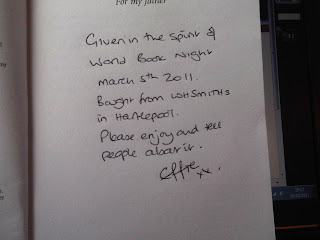 For my father
Given in the spirit of
World Book Night
March 5th 2011.
Bought from WHSMITHS
in Hartlepool.
Please enjoy and tell
people about it.
Effie xx.